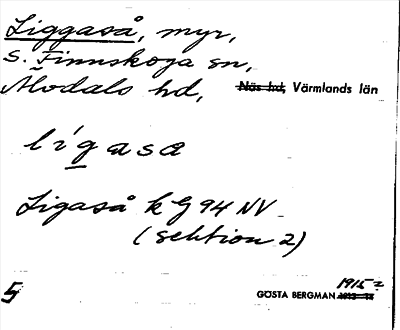 Liggaså, myr,
S. Finnskoga sn,
Älvdals hd, Näs hd, Värmlands län
lígasa
Ligaså k G 94 NV
(sektion 2)
5
1915
GÖSTA BERGMAN